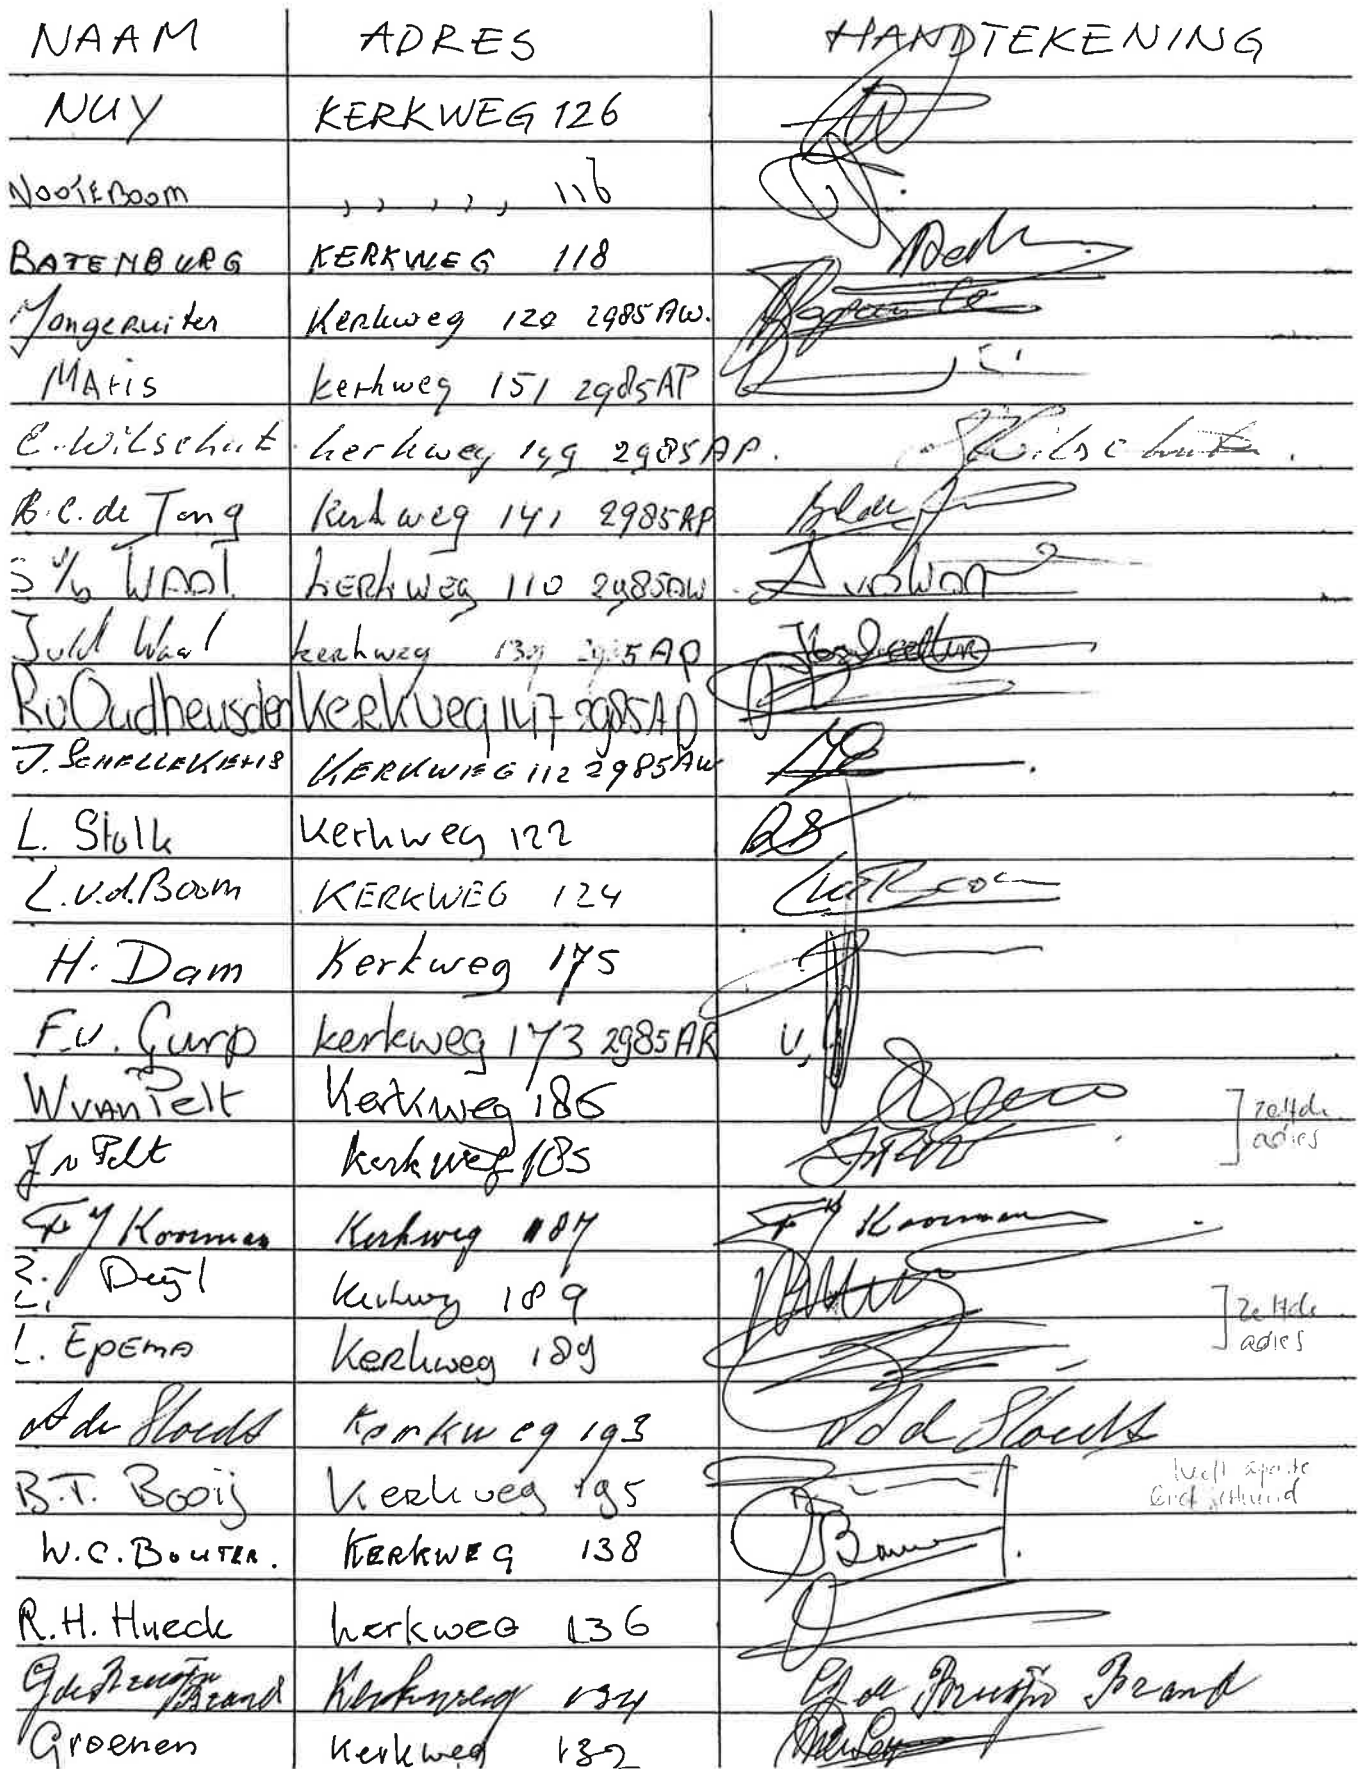 NAAM ADRES HANDTEKENING
NUY KERKWEG 126
NOOTEBOOM ,, ,, ,, 116
BATENBURG KERKWEG 118
Jongeruiter Kerkweg 120 2985AW.
MAtis kerkweg 151 2985AP
C. Wilschut kerkweg 149 2985AP. Wilschut.
B.C. de Jong Kerkweg 141 2985AP
S v/d WAAL KERKWEG 110 2985AW
J v/d Waal kerkweg 139 2985AP
R v Oudheusden Kerkweg 147 2985AP
J. SCHELLEKENS KERKWEG 112 2985AW
L. Stolk Kerkweg 122
L.v.d.Boom KERKWEG 124
H. Dam Kerkweg 175
F.v. Gurp kerkweg 173 2985AR
W van Pelt Kerkweg 185 ] zelfde
J v Pelt kerkweg 185 adres
F J Kooiman Kerkweg 187 F J Kooiman
Deijl Kerkweg 189 ] zelfde
L. EpEMA Kerkweg 189 adres
A de Sloedt Kerkweg 193 A d Sloedt
B.T. Booij Kerkweg 195 heeft aparte
W.C. BOUTER. KERKWEG 138
R.H. Hueck kerkweg 136
G de Bruijn Brand Kerkweg 134 G de Bruijn Brand
Groenen kerkweg 132